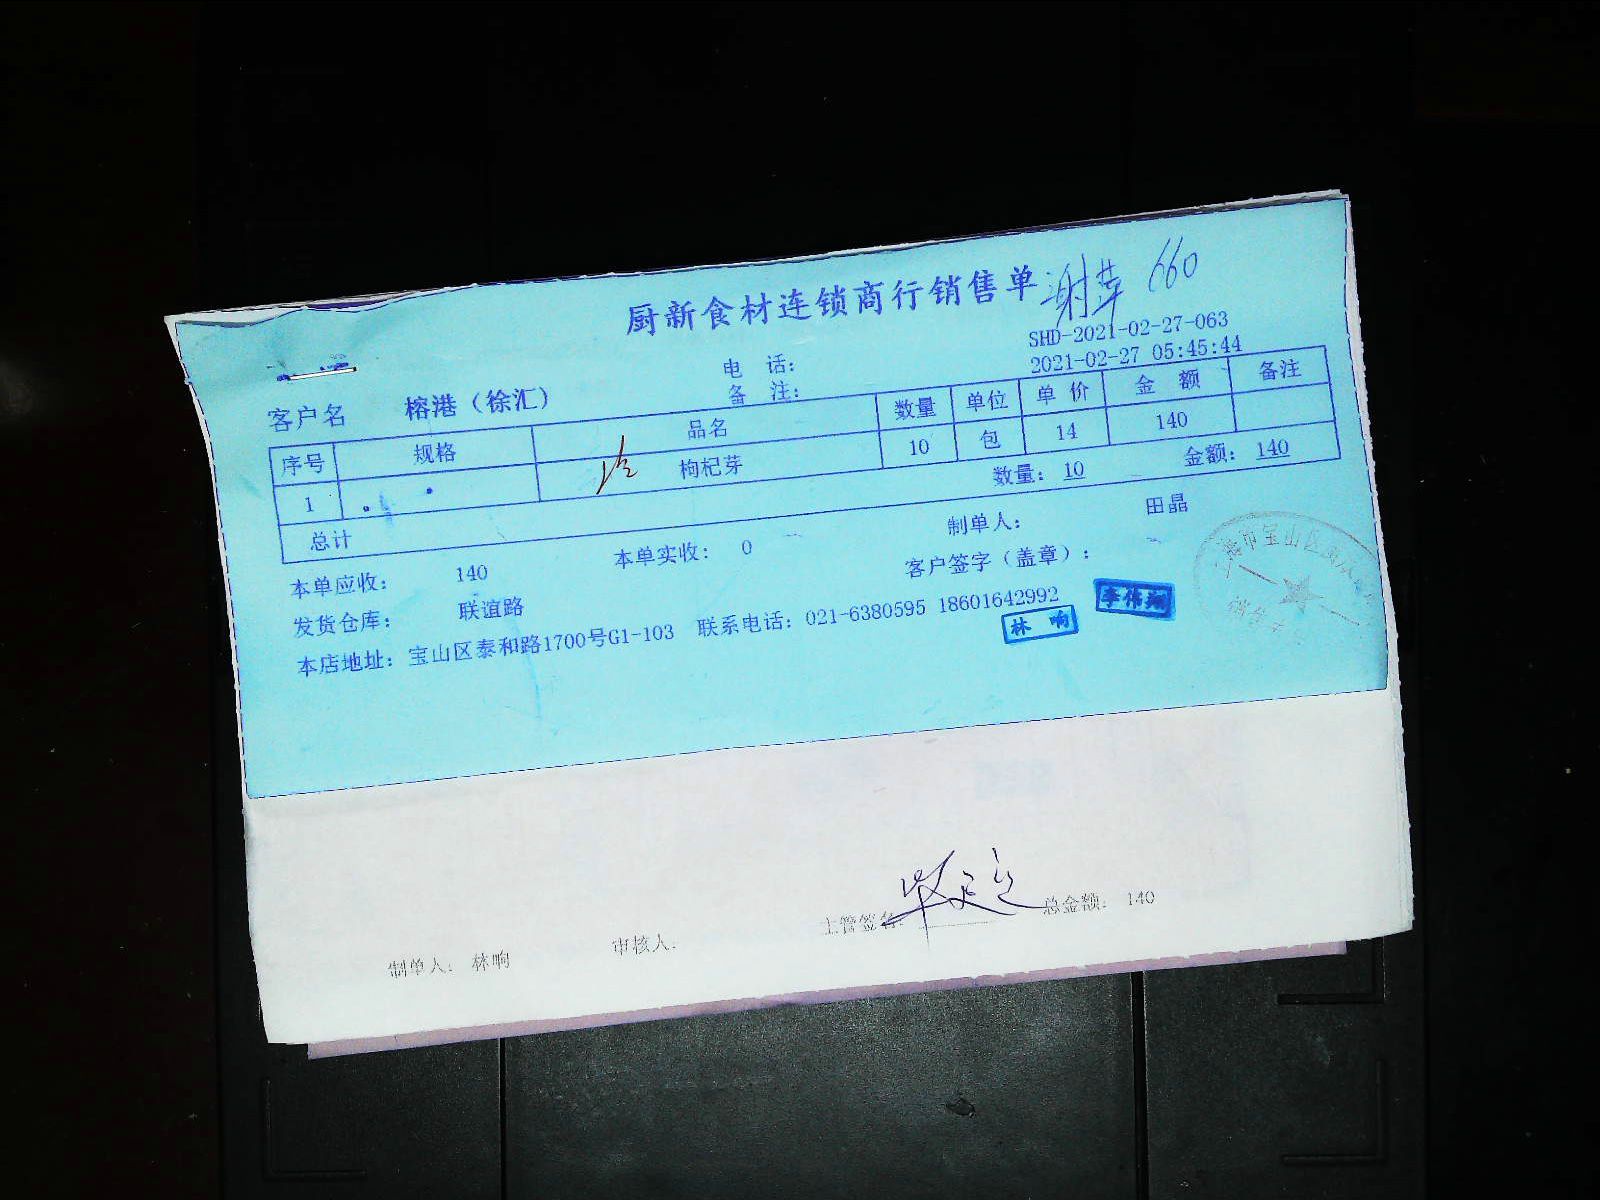 厨新食材连锁商行销售单 谢萍 660
SHD-2021-02-27-063
电 话： 2021-02-27 05:45:44
客户名 榕港（徐汇） 备 注：
序号 规格 品名 数量 单位 单 价 金 额 备注
1 枸杞芽 10 包 14 140
总计 数量：10 金额：140
本单应收： 140 本单实收： 0 制单人： 田晶
发货仓库： 联谊路 客户签字（盖章）：
本店地址：宝山区泰和路1700号G1-103 联系电话：021-6380595 18601642992
林 响
李伟翔
制单人： 林响 审核人： 主管签名： 总金额： 140